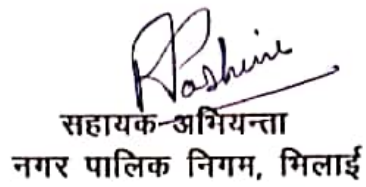 सहायक-अभियन्ता
नगर पालिक निगम, भिलाई